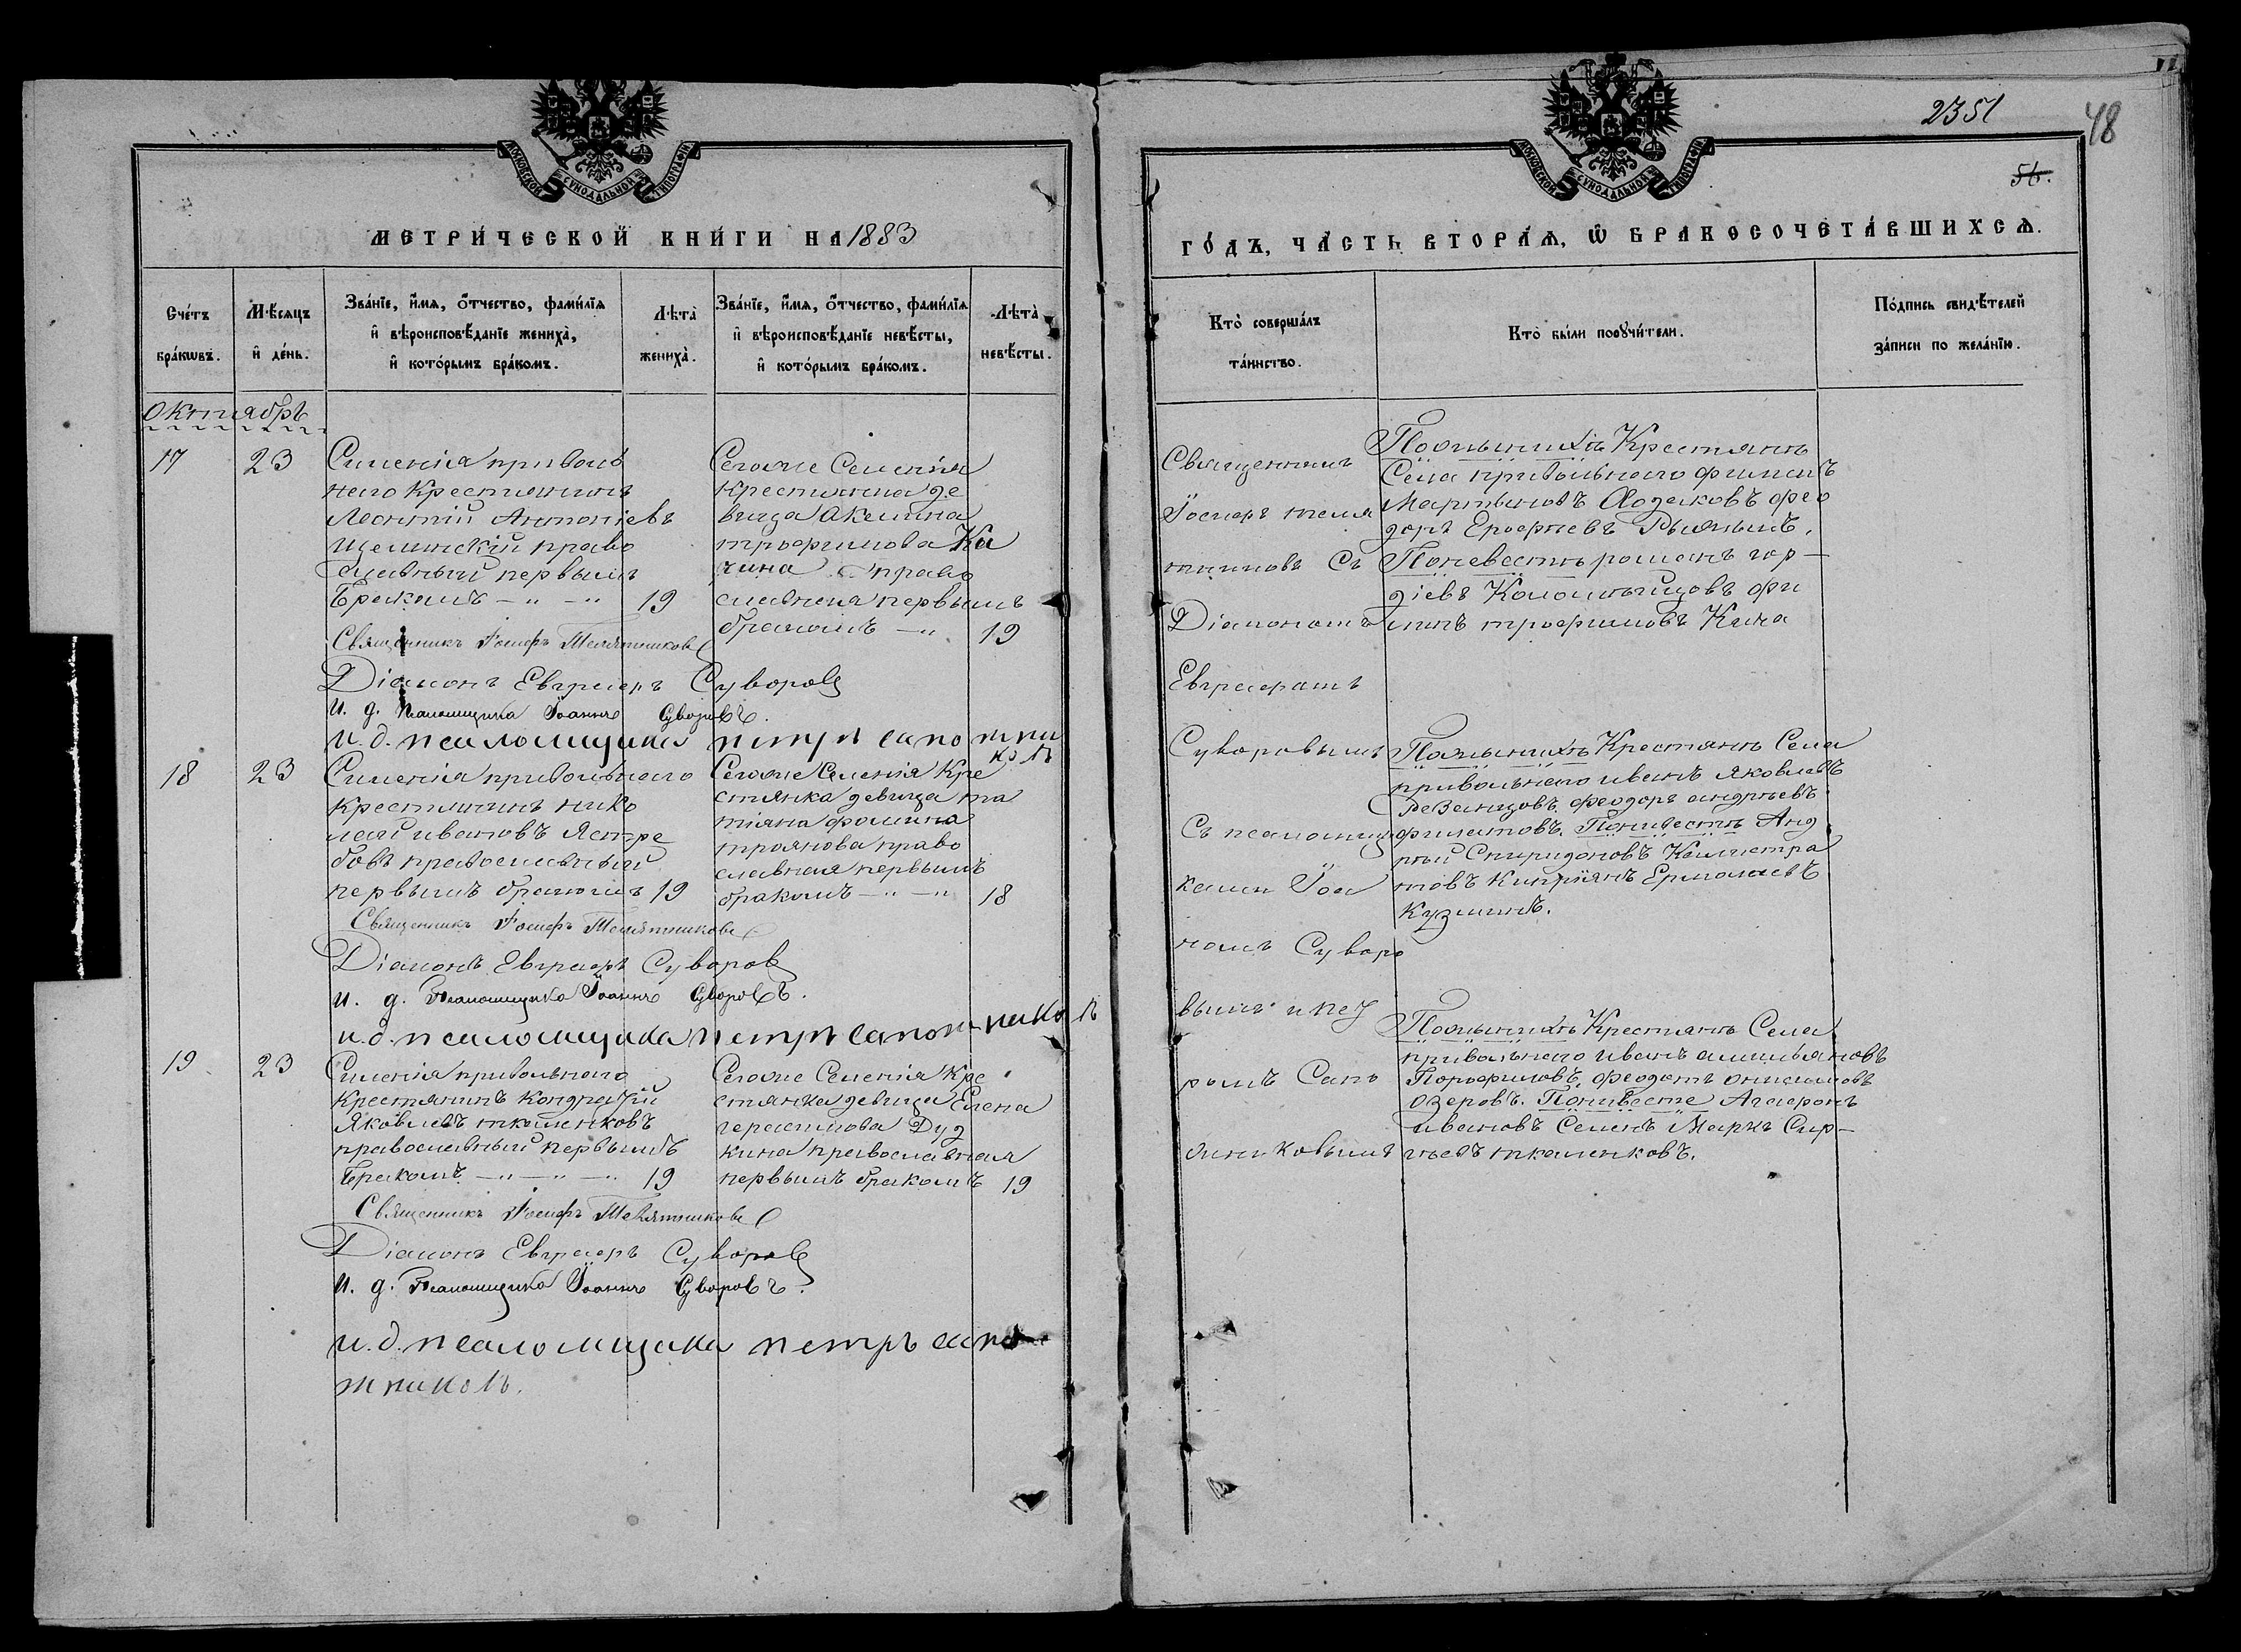 МОСКОВСКОЙ СУНОДАЛЬНОЙ ТИПОГРАФІИ
МЕТРИ́ЧЕСКОЙ КНИ́ГИ НА 1883
Сче́тъ бра́кѡвъ.
Мѣ́сяцъ и҆ де́нь.
Зва́нїе, и҆́мѧ, ѻ҆́тчество, фами́лїѧ
и҆ вѣроисповѣ́данїе жениха̀,
и҆ кото́рымъ бра́комъ.
Лѣта̀ жениха̀.
Зва́нїе, и҆́мѧ, ѻ҆́тчество, фами́лїѧ
и҆ вѣроисповѣ́данїе невѣ́сты,
и҆ кото́рымъ бра́комъ.
Лѣта̀ невѣ́сты.
Октябрь
17
23
Селенія приволь
наго Крестьянинъ
Леонтій Антоніевъ
Щелинскій право
славный первымъ
Бракомъ — " — "
19
Сегоже Селенія
крестьянка де
вица Акилина
трофимова Ка
чина право
славная первымъ
бракомъ — "
19
Священникъ Іосифъ Телятниковъ
Діаконъ Евграфъ Суворовъ
И. д. Псаломщика Іоаннъ Суворовъ.
И. д. псаломщика петръ сапо жни
ковъ
18
23
Селенія привольнаго
крестьянинъ нико
лай ивановъ Ястре
бовъ православный
первымъ бракомъ
19
Сегоже Селенія Кре
стьянка девица та
тіяна фомина
троянова право
славная первымъ
бракомъ — " — "
18
Священникъ Іосифъ Телятниковъ
Діаконъ Евграфъ Суворовъ
И. д. Псаломщика Іоаннъ Суворовъ.
и. д. псаломщика петръ сапожниковъ
19
23
Селенія привольнаго
крестьянинъ Кондратій
Яковлевъ ткаленковъ
православный первымъ
Бракомъ — " — " — "
19
Сегоже Селенія Кре
стьянка девица Елена
герасимова Дуд
кина православная
первымъ бракомъ
19
Священникъ Іосифъ Телятниковъ
Діаконъ Евграфъ Суворовъ
И. д. Псаломщика Іоаннъ Суворовъ.
и. д. псаломщика петръ сапо
жниковъ.
2351
48
56.
МОСКОВСКОЙ СУНОДАЛЬНОЙ ТИПОГРАФІИ
ГО́ДЪ, ЧА́СТЬ ВТОРА́Ѧ, Ѡ҆ БРАКОСОЧЕТА́ВШИХСѦ.
Кто̀ соверша́лъ
та́инство.
Кто̀ бы́ли порꙋчи́тели.
По́дпись свидѣ́телей
за́писи по жела́нїю.
Священникъ
Іосифъ теля
тниковъ Съ
Діакономъ
Евграфомъ
Суворовымъ
Съ псаломщи
ками Іоа
номъ Суворо
вымъ и пет
ромъ Сапо
жниковымъ
По женихѣ Крестьяне
Села привольнаго филипъ
Мартыновъ Ходаковъ фео
доръ Ерофеевъ
По невестѣ романъ гор-
діевъ Коломыйцовъ фи
липъ трофимовъ Кача
По женихѣ Крестьяне Села
привольнаго иванъ Яковлевъ
Резанцовъ феодоръ андреевъ
филатовъ. По невестѣ Анд
рей Спиридоновъ Калистра
товъ Кипріянъ Ермолаевъ
Кузминъ.
По женихѣ Крестьяне Села
привольнаго иванъ амильяновъ
Порфировъ, феодотъ онисимовъ
озеровъ. По невесте Агафонъ
ивановъ Семенъ Маркъ Сер-
гѣевъ ткаленковъ.